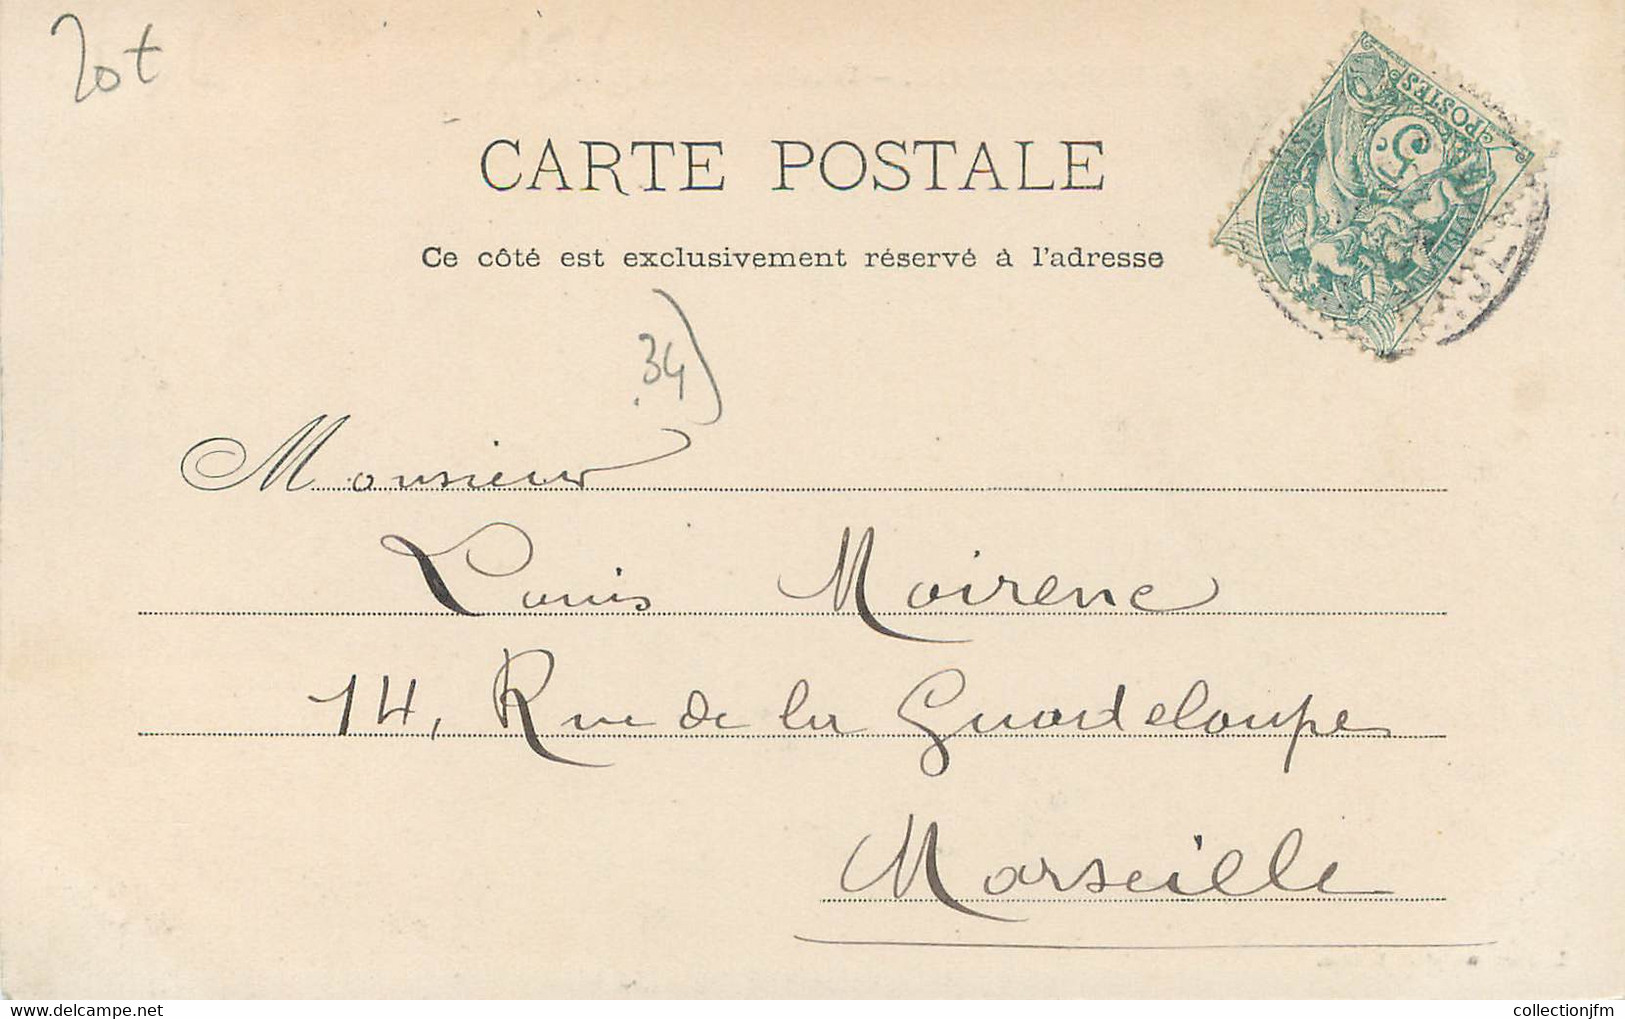 CARTE POSTALE
Ce côté est exclusivement réservé à l'adresse
POSTES
5
34)
Monsieur
Louis Moirenc
14, Rue de la Guadeloupe
Marseille
collectionjfm